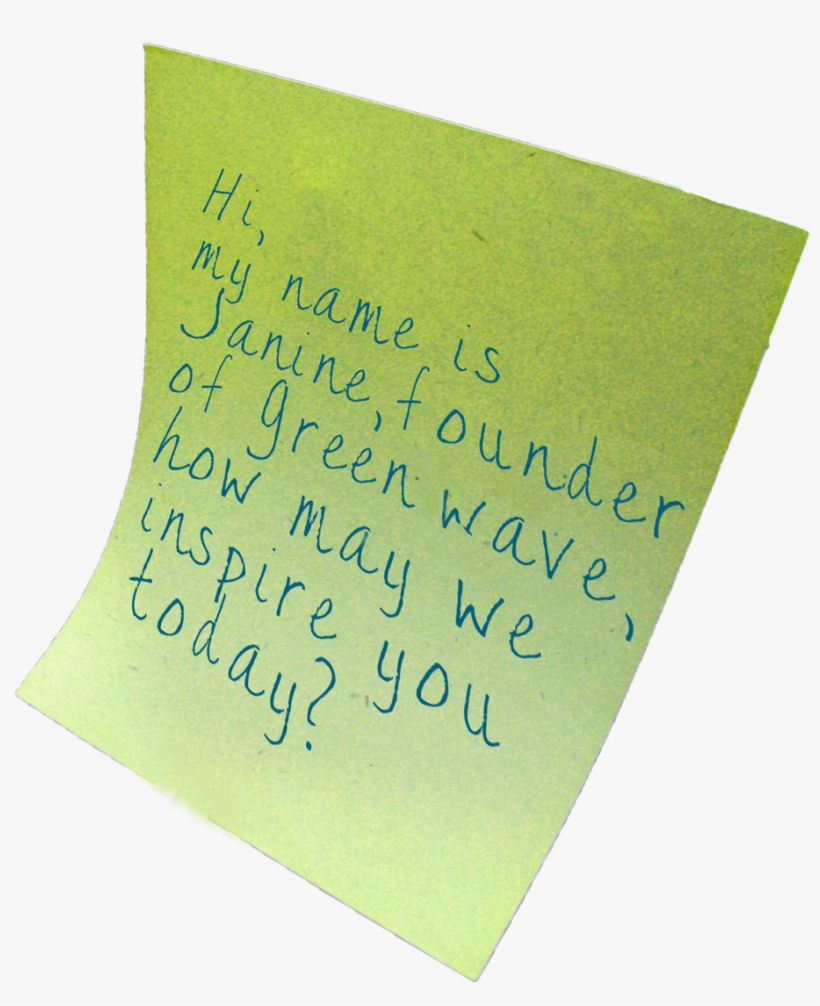 Hi,
my name is
Janine, founder
of green wave,
how may we
inspire you
today?